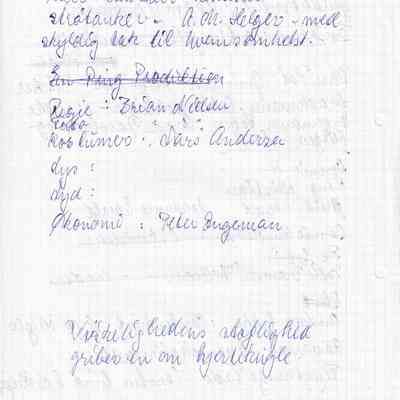 stråtanker. A.M. Helger - med
skyldig tak til hvemsomhelst.
En Ping Produktion
Regie : Brian Nielsen.
Foto " " "
Kostumer : Lars Andersen
lys :
lyd :
Økonomi : Peter Ingeman
Virkelighedens støflighed
griber en om hjertekugle